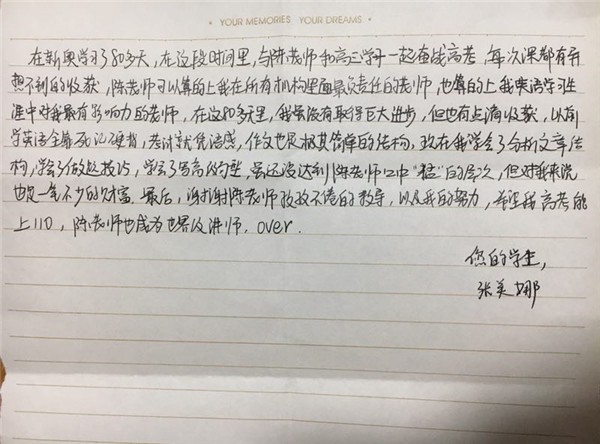 YOUR MEMORIES YOUR DREAMS
在新奥学习了80多天,在这段时间里,与陈老师和高三学子一起奋战高考,每次课都有意
想不到的收获,陈老师可以算的上我在所有机构里面最负责任的老师,也算的上我英语学习生
涯中对我最有影响力的老师,在这80多天里,我虽没有取得巨大进步,但也有点滴收获,以前
学英语全靠死记硬背,考试就凭语感,作文也是极其简单的结构,现在我学会了分析文章结
构,学会了做题技巧,学会了写高级句型,虽还没达到陈老师口中“ ”的层次,但对我来说
也是一笔不少的财富.最后,谢谢陈老师孜孜不倦的教导,以及我的努力,希望我高考能
上110,陈老师也成为世界级讲师,over.
您的学生,
张美娜